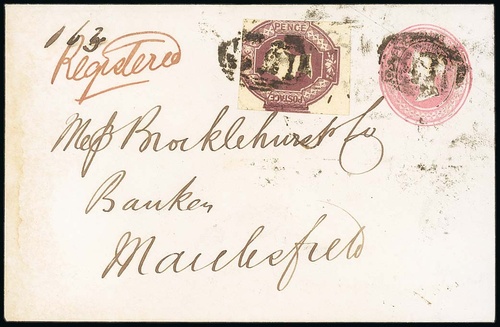 163
Registered
PENCE
POSTAGE
Mess Brocklehurst & Co
Bankers
Macclesfield